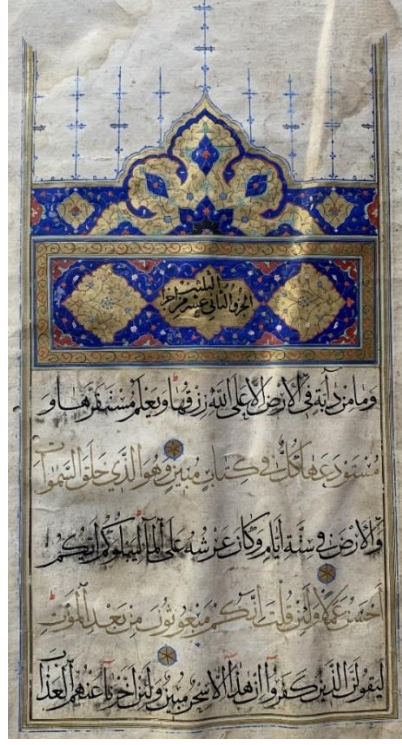 الجزو الثانى عشر من اجزا
الثلثين
وَمَا مِنْ دَآبَّةٍ فِى الْاَرْضِ اِلَّا عَلَى اللّٰهِ رِزْقُهَا وَيَعْلَمُ مُسْتَقَرَّهَا وَ
مُسْتَوْدَعَهَا كُلٌّ فِى كِتَابٍ مُبِينٍ وَهُوَ الَّذِى خَلَقَ السَّمٰوَاتِ
وَالْاَرْضَ فِى سِتَّةِ اَيَّامٍ وَكَانَ عَرْشُهُ عَلَى الْمَآءِ لِيَبْلُوَكُمْ اَيُّكُمْ
اَحْسَنُ عَمَلًا وَلَئِنْ قُلْتَ اِنَّكُمْ مَبْعُوثُونَ مِنْ بَعْدِ الْمَوْتِ
لَيَقُولَنَّ الَّذِينَ كَفَرُوآ اِنْ هٰذَآ اِلَّا سِحْرٌ مُبِينٌ وَلَئِنْ اَخَّرْنَا عَنْهُمُ الْعَذَابَ